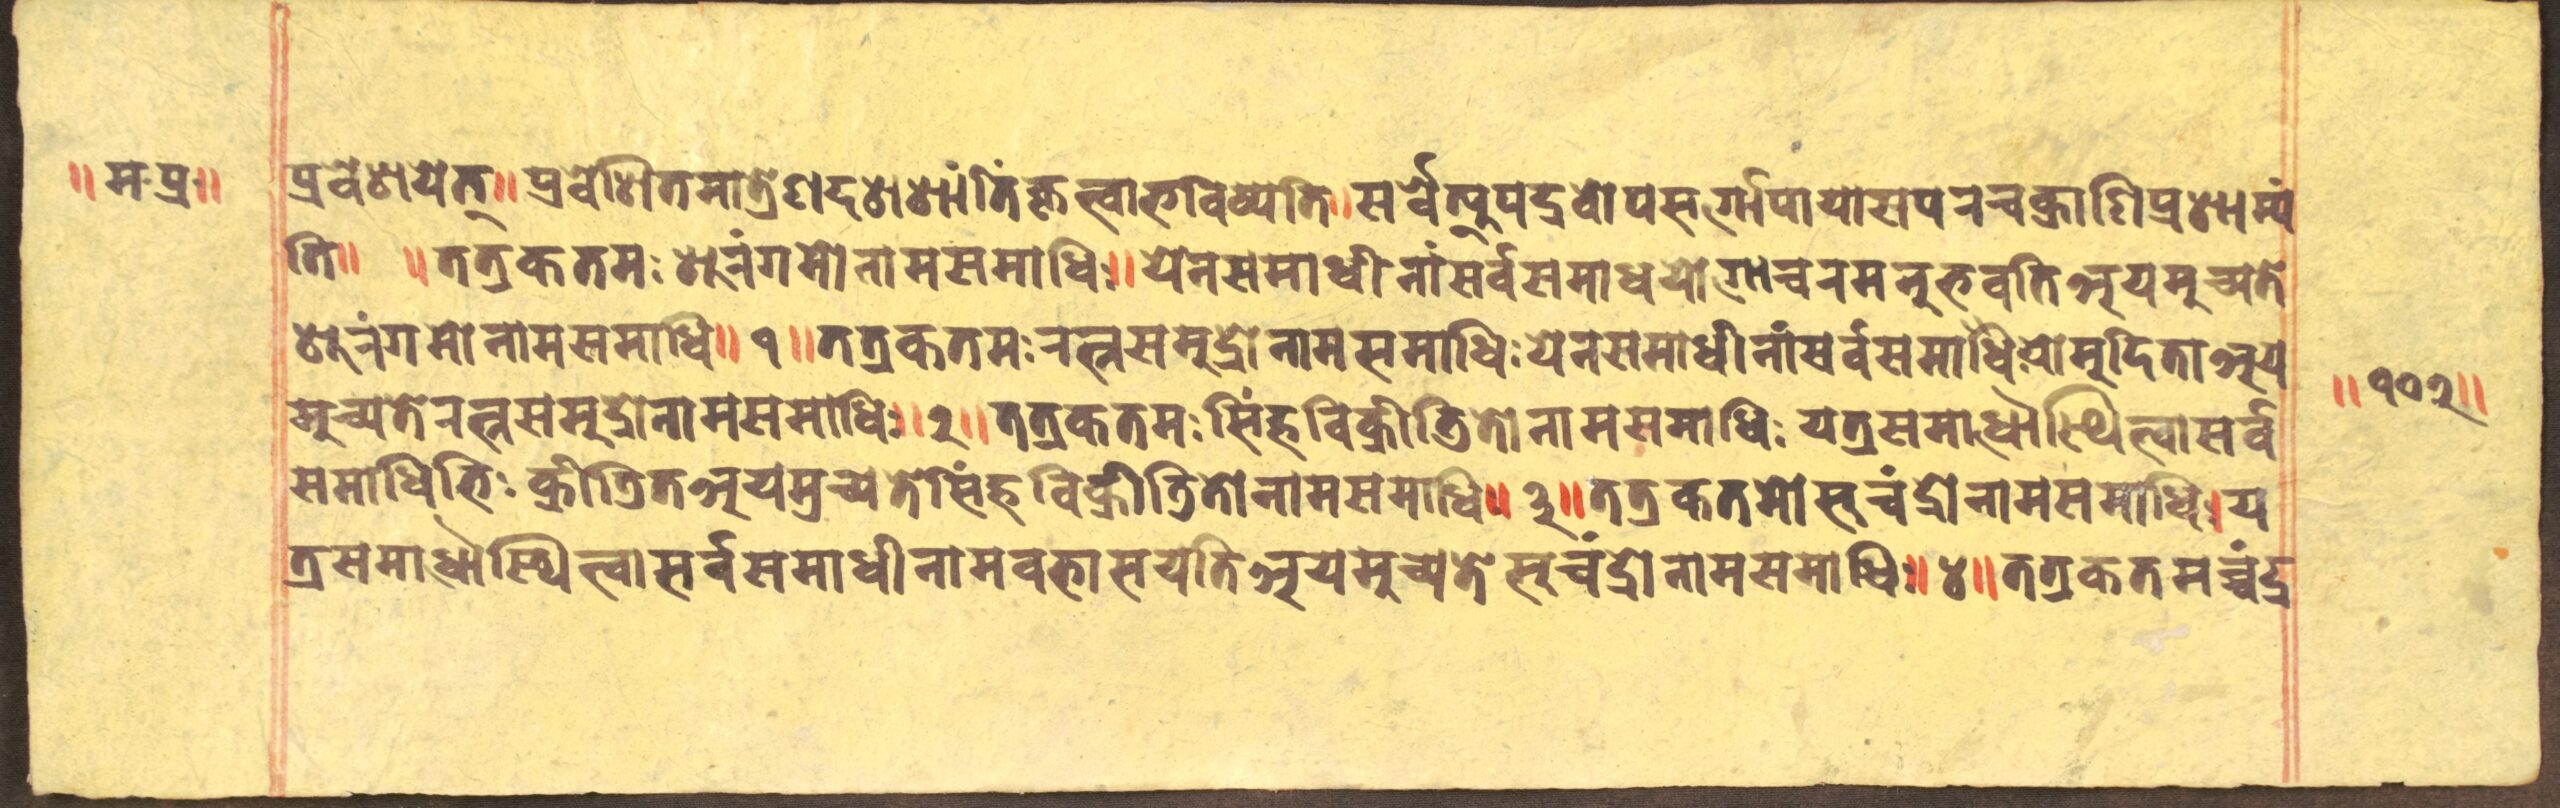 ॥ म·प्र·॥
प्रवेशयेत्॥ प्रवेशितमात्रेणदशशांतिंकृत्वाभविष्यति॥सर्वेत्युपद्रवोपसर्गोपायासपरचक्राणिप्रशाम्यं
ति॥ ॥ततुकतमः शूरंगमोनामसमाधिः॥ येनसमाधीनांसर्वसमाधयोगोचरमनुभवतिअयमुच्यते
शूरंगमोनामसमाधि॥ १॥ततुकतमः रत्नसमुद्रोनामसमाधिः येनसमाधीनांसर्वसमाधियोमुदिताअय
मुच्यतेरत्नसमुद्रोनामसमाधिः॥ २॥ततुकतमः सिंहविक्रीडितोनामसमाधिः यत्रसमाधौस्थित्वासर्व
समाधिभिः क्रीडितअयमुच्यतेसिंहविक्रीडितोनामसमाधि॥ ३॥ततुकतमोसुचंद्रोनामसमाधिः।य
त्रसमाधौस्थित्वासर्वसमाधीनामवभासयतिअयमुच्यतेसुचंद्रोनामसमाधिः॥ ४॥ततुकतमच्चंद्र
॥१०२॥